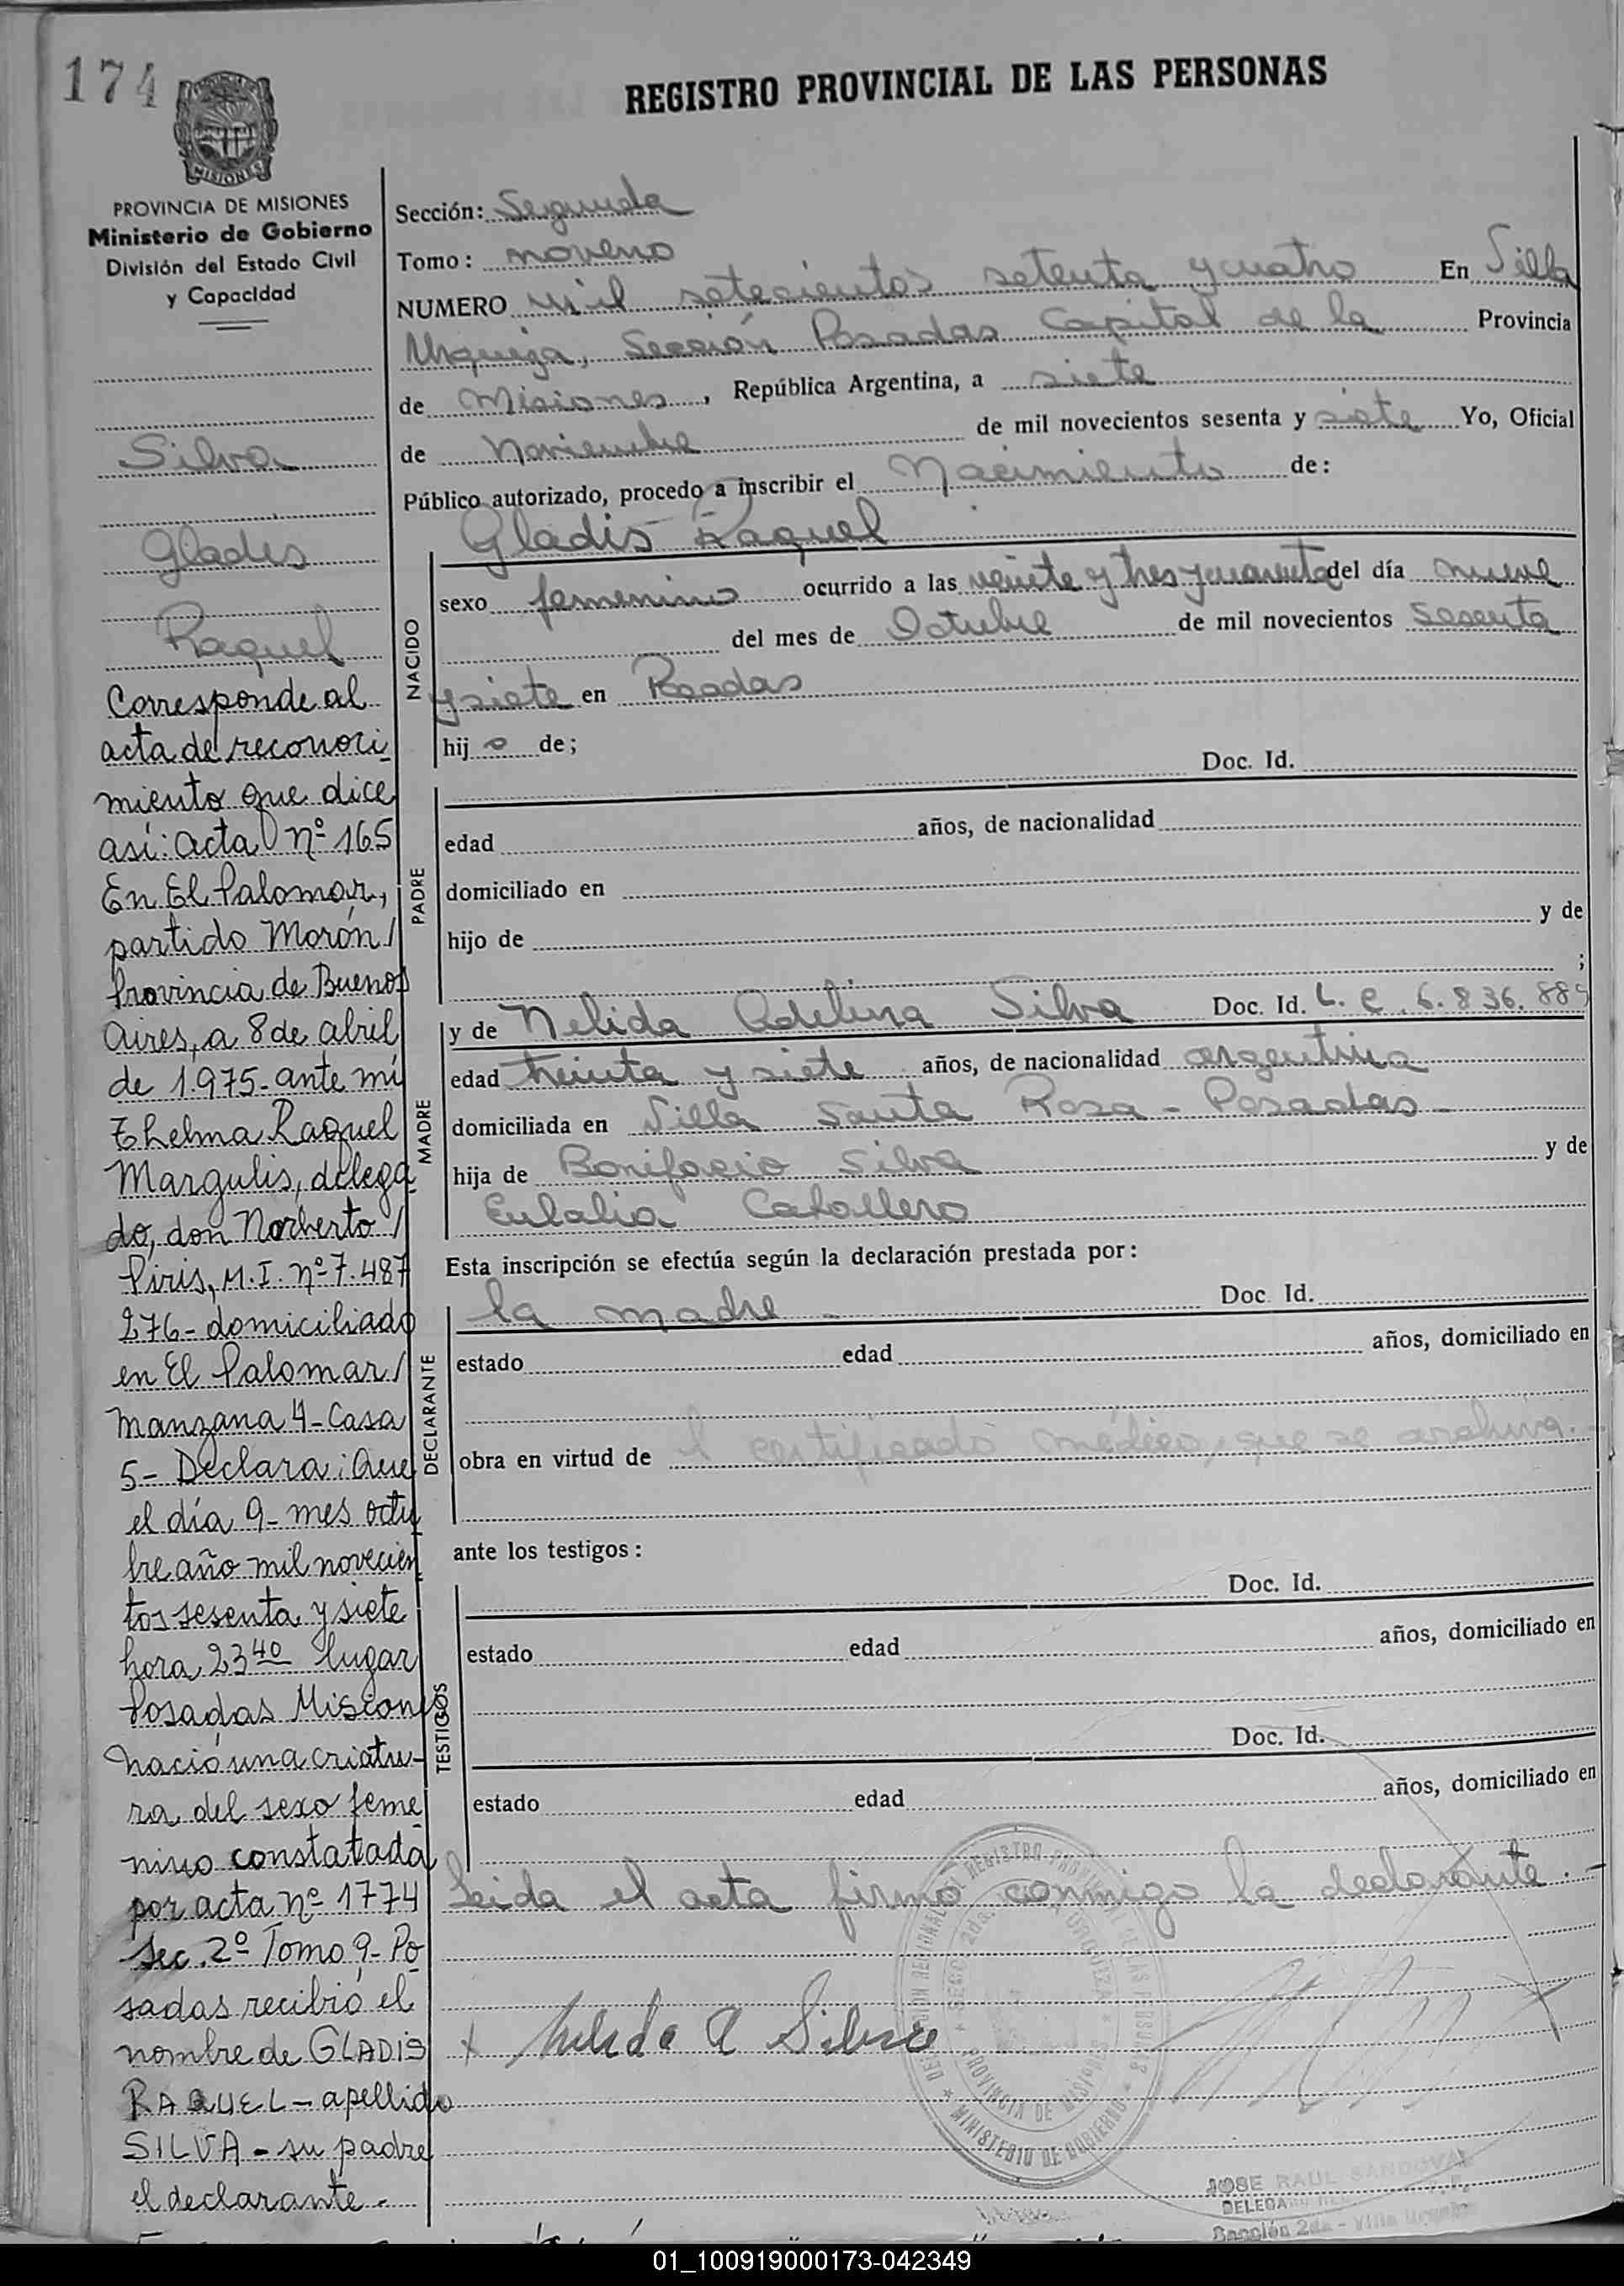 174
REGISTRO PROVINCIAL DE LAS PERSONAS
MISIONES
PROVINCIA DE MISIONES
Ministerio de Gobierno
División del Estado Civil
y Capacidad
Silva
Gladis
Raquel
Corresponde al
acta de reconoci
miento que dice
asi: acta nº 165
En El Palomar,
partido Morón/
Provincia de Buenos
Aires, a 8 de abril
de 1.975- ante mi
Thelma Raquel
Margulis, delega
do, don Norberto/
Piris, M.I. nº 7.487
276- domiciliado
en El Palomar/
Manzana 4- Casa
5- Declara: Que
el día 9- mes octu
bre año mil novecien
tos sesenta y siete
hora 23 40 lugar
Posadas Misiones
nació una criatu-
ra del sexo feme
nino constatada
por acta nº 1774
Sec. 2º Tomo 9- Po
sadas recibió el
nombre de GLADIS
RAQUEL- apellido
SILVA- su padre
el declarante-
Sección: Segunda
Tomo: noveno
NUMERO mil setecientos setenta y cuatro En Villa
Urquiza, Sección Posadas Capital de la Provincia
de Misiones, República Argentina, a siete
de Noviembre de mil novecientos sesenta y siete Yo, Oficial
Público autorizado, procedo a inscribir el Nacimiento de:
Gladis Raquel
NACIDO
sexo femenino ocurrido a las veinte y tres y cuarenta del día nueve
del mes de Octubre de mil novecientos sesenta
y siete en Posadas
hij a de;
Doc. Id.
PADRE
edad años, de nacionalidad
domiciliado en
hijo de y de
;
MADRE
y de Nelida Adelina Silva Doc. Id. L. C. 6.836.889
edad treinta y siete años, de nacionalidad argentina
domiciliada en Villa Santa Rosa - Posadas -
hija de Bonifacio Silva y de
Eulalia Caballero
Esta inscripción se efectúa según la declaración prestada por:
DECLARANTE
la madre - Doc. Id.
estado edad años, domiciliado en
obra en virtud de l certificado médico, que se archiva.-
ante los testigos:
TESTIGOS
Doc. Id.
estado edad años, domiciliado en
Doc. Id.
estado edad años, domiciliado en
Leida el acta firmo conmigo la declarante.-
x Nelida A Silva
REGISTRO PROVINCIAL DE LAS PERSONAS
SECC. 2da.
PROVINCIA DE MISIONES
* MINISTERIO DE GOBIERNO *
JOSE RAUL SANDOVAL
Sección 2da - Villa Urquiza
01_100919000173-042349